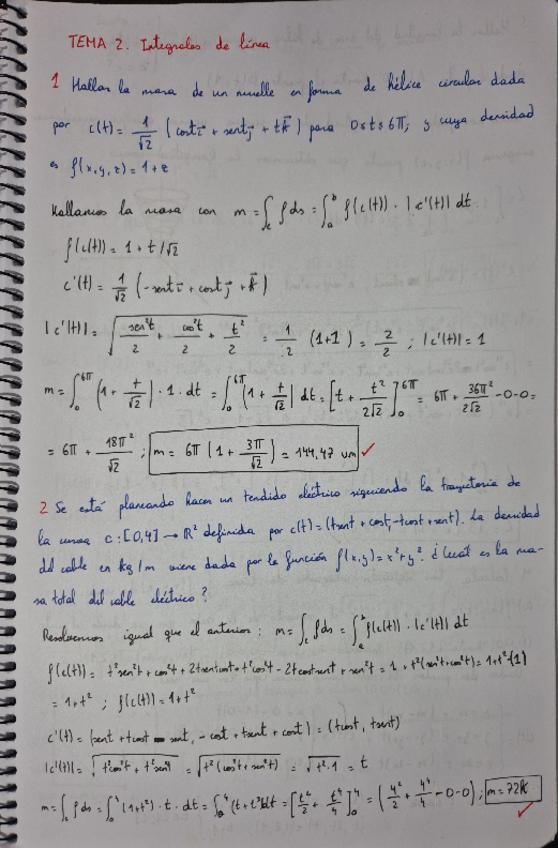 TEMA 2. Integrales de línea
1 Hallar la masa de un muelle en forma de hélice circular dada
por c(t) = 1/√2 (cost i⃗ + sent j⃗ + t k⃗) para 0≤t≤6π, y cuya densidad
es ρ(x,y,z) = 1+z
Hallamos la masa con m = ∫_c ρ ds = ∫_a^b ρ(c(t)) · |c'(t)| dt
ρ(c(t)) = 1 + t/√2
c'(t) = 1/√2 (-sent i⃗ + cost j⃗ + k⃗)
|c'(t)| = √(sen²t/2 + cos²t/2 + t²/2) = 1/2 (1+1) = 2/2 ; |c'(t)| = 1
m = ∫_0^6π (1 + t/√2) · 1 · dt = ∫_0^6π (1 + t/√2) dt = [t + t²/2√2]_0^6π = 6π + 36π²/2√2 - 0 - 0 =
= 6π + 18π²/√2 ; m = 6π (1 + 3π/√2) = 144,47 um ✓
2 Se está planeando hacer un tendido eléctrico siguiendo la trayectoria de
la curva c: [0,4] → R² definida por c(t) = (tsent + cost, -tcost + sent). La densidad
del cable en kg/m viene dada por la función ρ(x,y) = x² + y². ¿Cuál es la ma-
sa total del cable eléctrico?
Resolvemos igual que el anterior: m = ∫_c ρ ds = ∫_a^b ρ(c(t)) · |c'(t)| dt
ρ(c(t)) = t²sen²t + cos²t + 2tsentcost + t²cos²t - 2tcostsent + sen²t = 1 + t²(sen²t + cos²t) = 1 + t²·(1)
= 1 + t² ; ρ(c(t)) = 1 + t²
c'(t) = (sent + tcost - sent, - cost + tsent + cost) = (tcost, tsent)
|c'(t)| = √(t²cos²t + t²sen²t) = √(t²(cos²t + sen²t)) = √(t²·1) = t
m = ∫_c ρ ds = ∫_0^4 (1+t²) · t · dt = ∫_0^4 (t + t³) dt = [t²/2 + t⁴/4]_0^4 = (4²/2 + 4⁴/4 - 0 - 0) ; m = 72k ✓